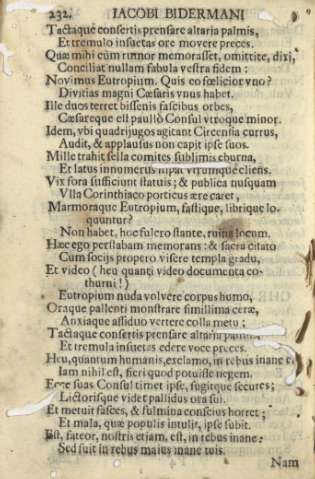 232. IACOBI BIDERMANI
Tactaque consertis prensare altaria palmis,
Et tremulo insuetas ore movere preces.
Quæ mihi cùm rumor memorasset, omittite, dixi,
Conciliat nullam fabula vestra fidem:
Novimus Eutropium. Quis eo fœlicior uno?
Divitias magni Cæsaris vnus habet.
Ille duos terret bissenis fascibus orbes,
Cæsareque est paullò Consul vtroque minor.
Idem, vbi quadrijugos agitant Circensia currus,
Audit, & applausus non capit ipse suos.
Mille trahit sella comites sublimis eburna,
Et latus innumerus stipat vtrumque cliens.
Vix fora sufficiunt statuis; & publica nusquam
Vlla Corinthiaco porticus ære caret,
Marmoraque Eutropium, fastique, librique lo-
quuntur?
Non habet, hoc fulcro stante, ruina locum.
Hæc ego perstabam memorans: & sacra citato
Cum socijs propero visere templa gradu,
Et video (heu quanti video documenta co-
thurni!)
Eutropium nuda volvere corpus humo,
Oraque pallenti monstrare simillima ceræ,
Anxiaque assiduo vertere colla metu:
Tactaque consertis prensare altaria palmis
Et tremula insuetas edere voce preces.
Heu, quantum humanis, exclamo, in rebus inane e
Iam nihil est, fieri quod potuisse negem.
Ecce suas Consul timet ipse, fugitque secures;
Lictorisque videt pallidus ora sui.
Et metuit fasces, & fulmina conscius horret;
Et mala, quæ populis intulit, ipse subit.
Est, fateor, nostris etiam, est, in rebus inane:
Sed fuit in rebus maius inane tuis.
Nam